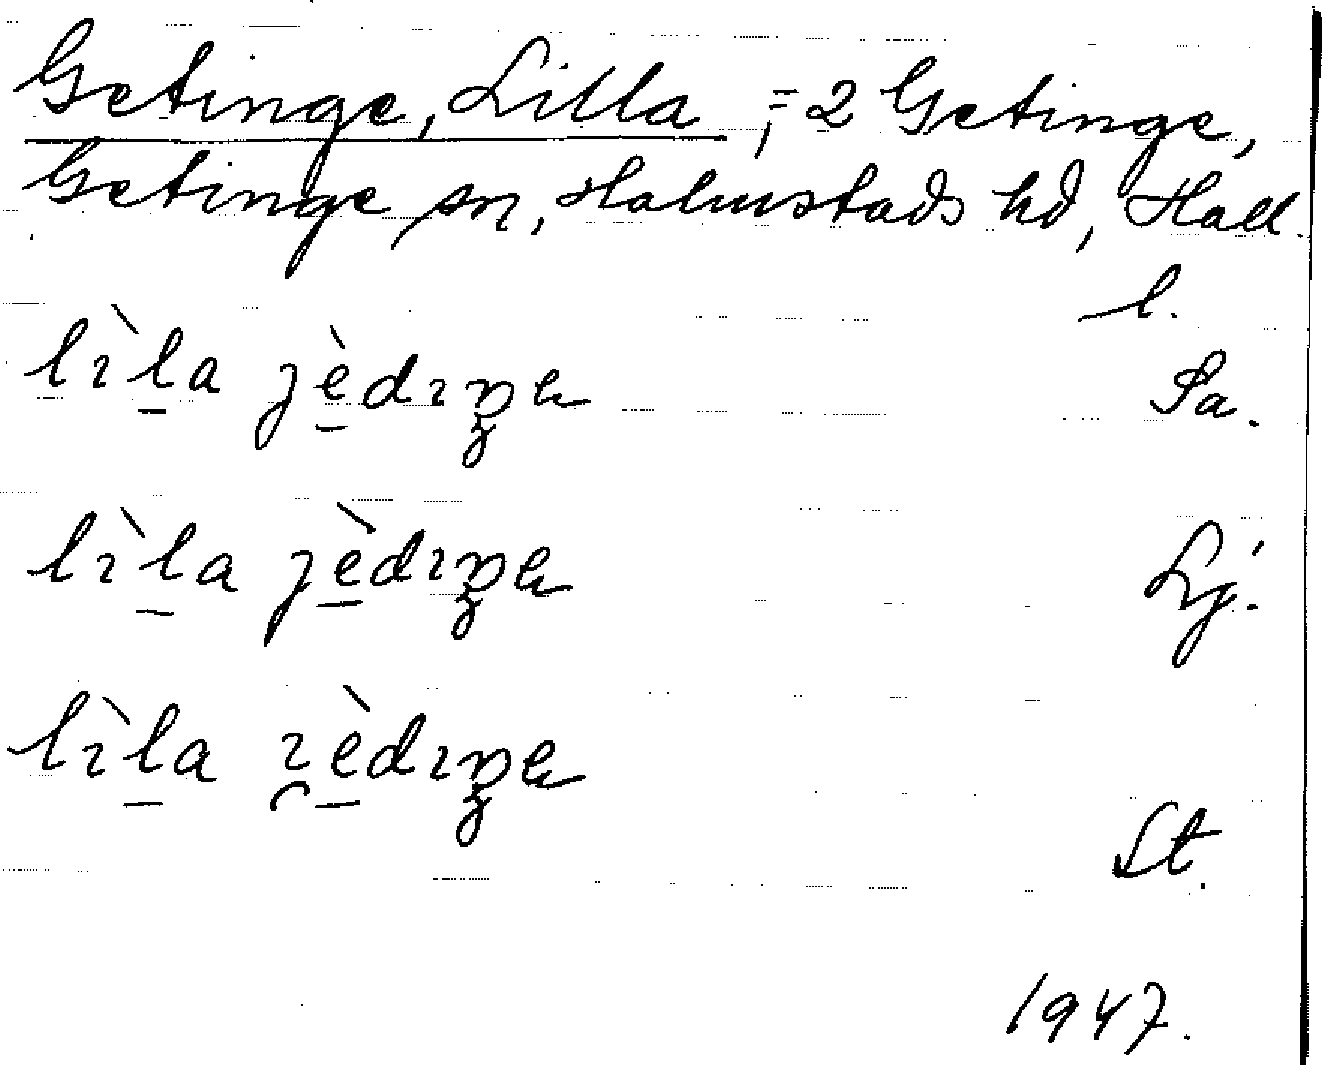 Getinge, Lilla, = 2 Getinge,
Getinge sn, Halmstads hd, Hall.
l.
lìla jèdıŋə Sa.
lìla jèdıŋə Lj.
lìla ı̯èdıŋə
St.
1947.